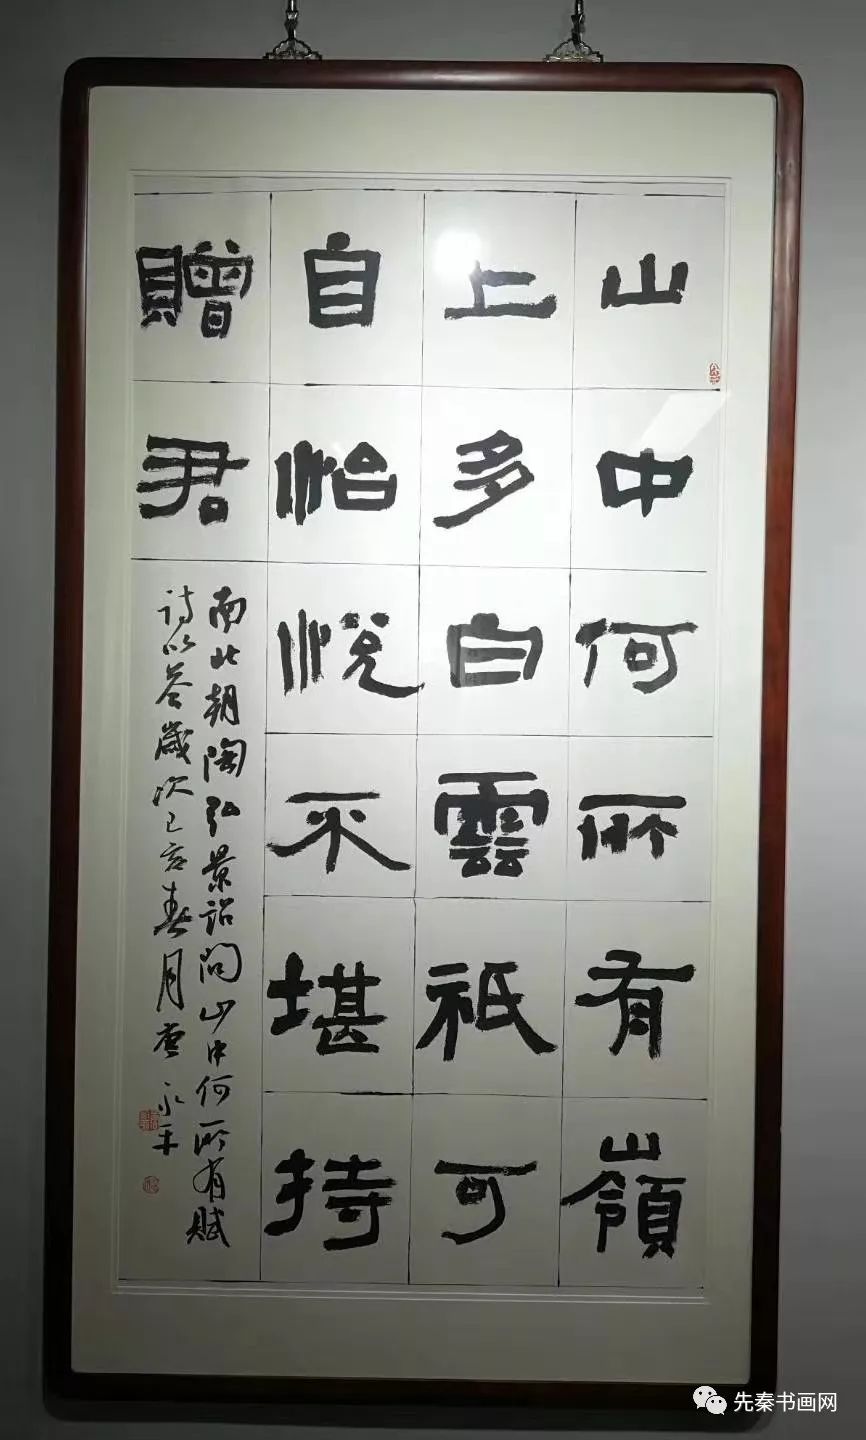 山中何所有嶺
上多白雲祇可
自怡悅不堪持
贈君
南北朝陶弘景詔問山中何所有賦
詩以答歲次己亥春月唐永平
先秦书画网